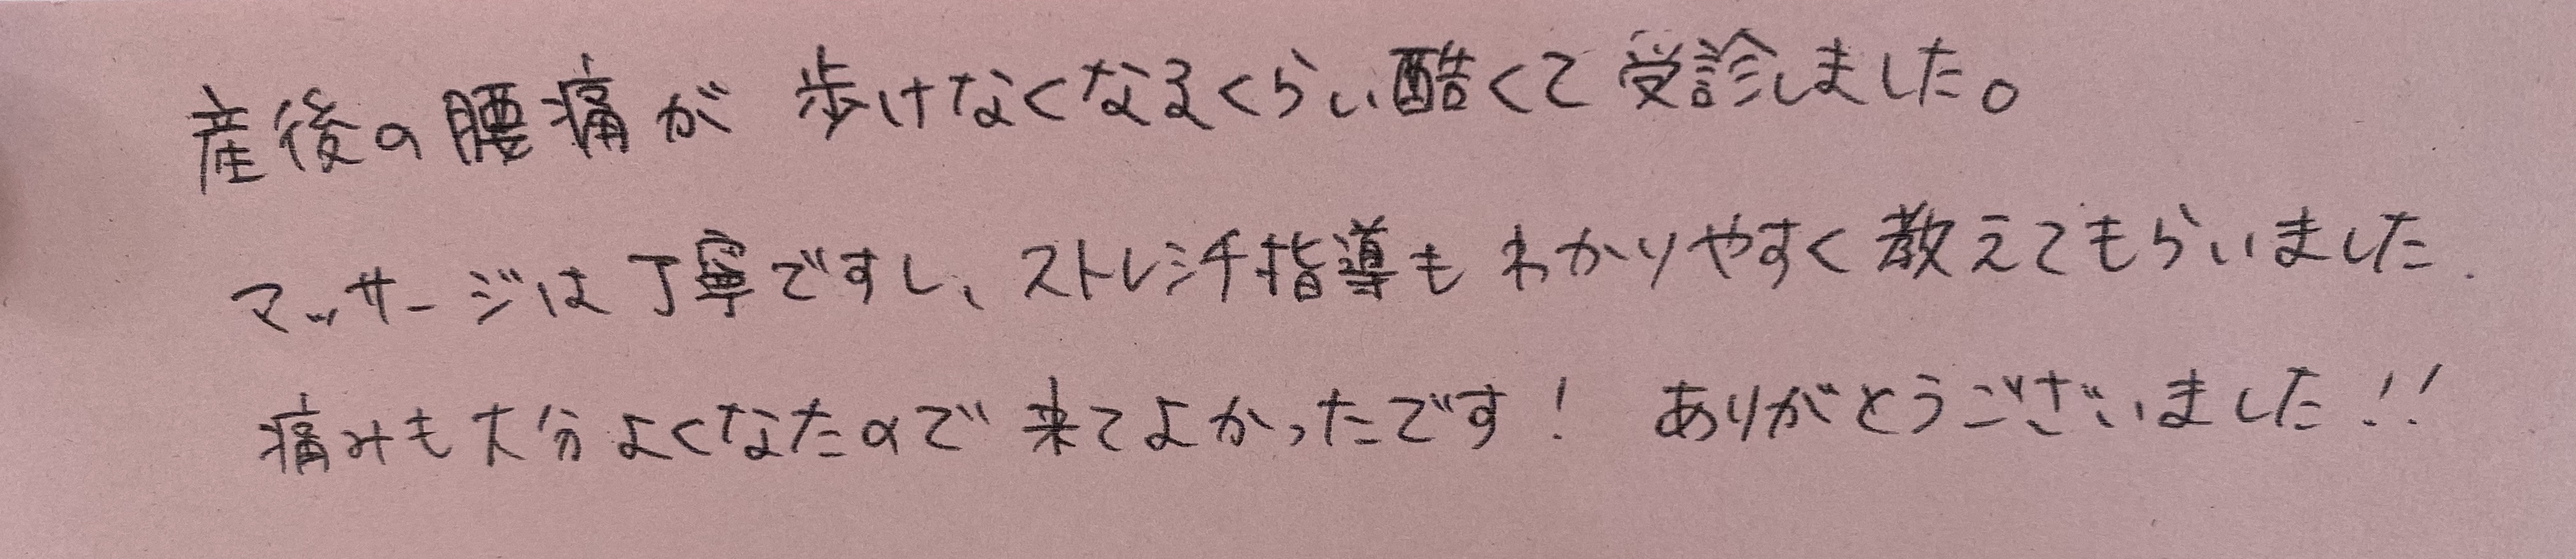 産後の腰痛が 歩けなくなるくらい酷くて受診しました。
マッサージは丁寧ですし、ストレッチ指導もわかりやすく教えてもらいました.
痛みも大分よくなたので来てよかったです! ありがとうございました!!